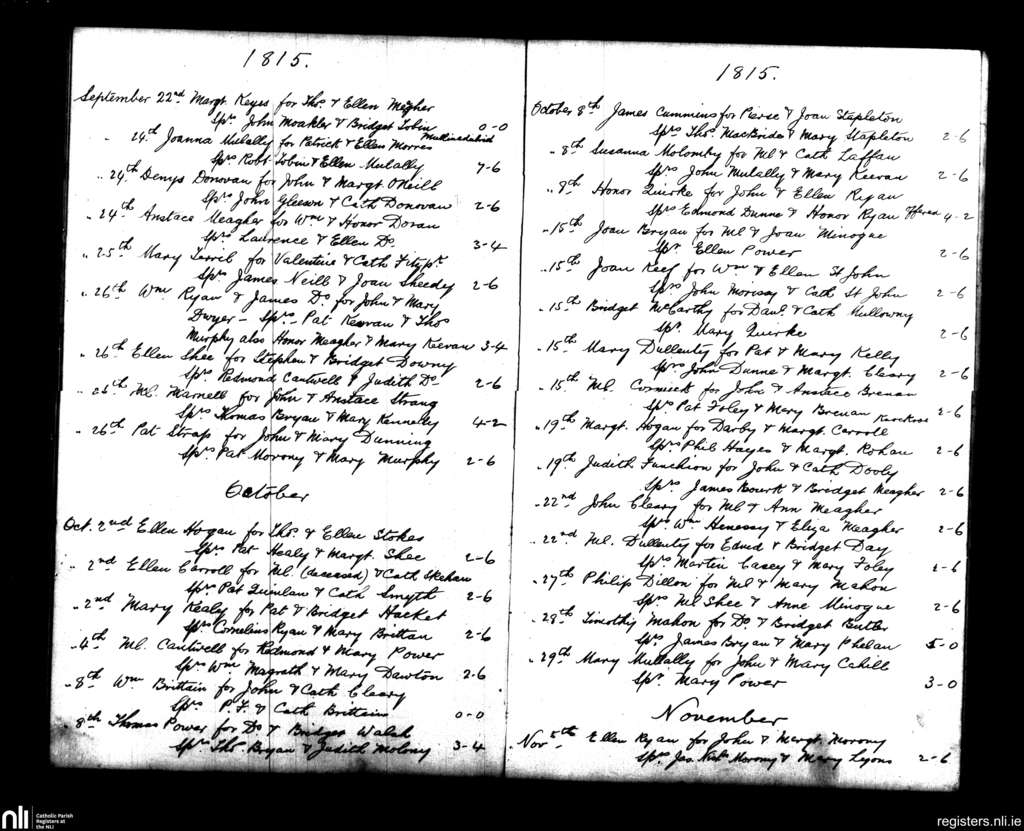 1815.
September 22nd Margt. Keyes for Thos & Ellen Meagher
Sprs John Moakler & Bridget Tobin 0-0
" 24th Joanna Mullally for Patrick & Ellen Morres
Sprs Robt Tobin & Ellen Mulally 7-6
" 24th Denys Donovan for John & Margt ONeill
Sprs John Gleeson & Cath Donovan 2-6
" 24th Anstace Meagher for Wm & Honor Doran
Sprs Laurence & Ellen Do. 3-4
" 25th Mary for Valentine & Cath Fitzpk.
Sprs James Neill & Joan Sheedy 2-6
" 26th Wm Ryan & James Do for John & Mary
Dwyer - Sprs Pat Keevan & Thos
Murphy also Honor Meagher & Mary Keevan 3-4
" 26th Ellen Shee for Stephen & Bridget Downy
Sprs Redmond Cantwell & Judith Do. 2-6
" 26th Ml. Marnell for John & Anstace Strang
Sprs Thomas Bryan & Mary Kennelly 4-2
" 26th Pat Strapp for John & Mary Dunning
Sprs Pat Morony & Mary Murphy 2-6
October
Oct. 2nd Ellen Hogan for Thos. & Ellen Stokes
Sprs Pat Healy & Margt. Shee 2-6
" 2nd Ellen Carroll for Ml. (deceased) & Cath Skehan
Sprs Pat Quinlan & Cath Smyth 2-6
" 2nd Mary Kealy for Pat & Bridget Hacket
Sprs Cornelius Ryan & Mary Brittan 2-6
" 4th Ml. Cantwell for Redmond & Mary Power
Sprs Wm Magrath & Mary Dawton 2-6
" 8th Wm Brittain for John & Cath Cleary
Sprs P.F. & Cath Brittain 0-0
8th Thomas Power for Do & Bridget Walsh
Sprs Thos. Bryan & Judith Molony 3-4
1815.
October 8th James Cummins for Pierse & Joan Stapleton
Sprs Thos. MacBride & Mary Stapleton 2-6
" 8th Susanna Molomby for Ml & Cath Laffan
Sprs John Mulally & Mary Keevan 2-6
" 8th Honor Quirke for John & Ellen Ryan
Sprs Edmond Dunne & Honor Ryan 4-2
" 15th Joan Bryan for Ml & Joan Minogue
Spr. Ellen Power 2-6
" 15th Joan Keef for Wm & Ellen St John
Sprs John Morissy & Cath St John 2-6
" 15th Bridget McCarthy for Danl. & Cath Mullowny
Spr. Mary Quirke 2-6
" 15th Mary Dullenty for Pat & Mary Kelly
Sprs John Dunne & Margt. Cleary 2-6
" 15th Ml. Cormick for John & Anstace Brenan
Sprs Pat Foley & Mary Brenan 2-6
" 19th Margt. Hogan for Darby & Margt. Carroll
Sprs Phil Hayes & Margt. Rohan 2-6
" 19th Judith Funchion for John & Cath Dooly
Sprs James Bourk & Bridget Meagher 2-6
" 22nd John Cleary for Ml & Ann Meagher
Sprs Wm Henessy & Eliza Meagher 2-6
" 22nd Ml. Dullenty for Edmd & Bridget Day
Sprs Martin Casey & Mary Foley 2-6
" 27th Philip Dillon for Ml & Mary Mahon
Sprs Ml Shee & Anne Minogue 2-6
" 28th Timothy Mahon for Do. & Bridget Butler
Sprs James Bryan & Mary Phelan 5-0
" 29th Mary Mullally for John & Mary Cahill
Spr. Mary Power 3-0
November
" Nov 5th Ellen Ryan for John & Margt. Morony
Sprs Jas. Morony & Mary Lyons 2-6
nli Catholic Parish
Registers at
the NLI
registers.nli.ie